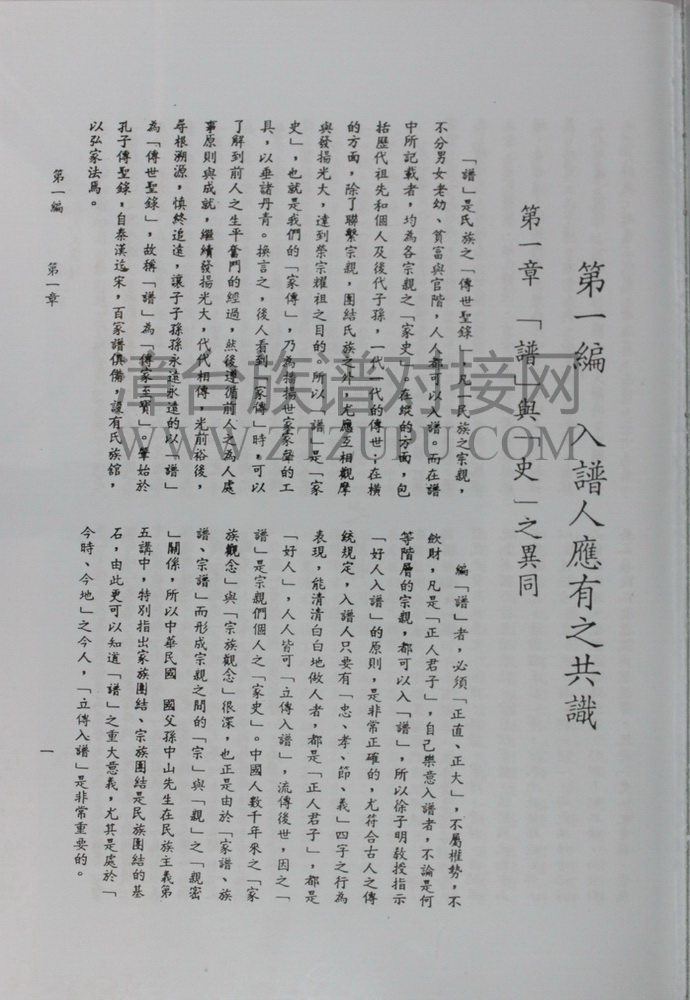 第一編　入譜人應有之共識
第一章　「譜」與「史」之異同
「譜」是民族之「傳世聖錄」，凡一民族之宗親，
不分男女老幼、貧富與官階，人人都可以入譜。而在譜
中所記載者，均為各宗親之「家史」，在縱的方面，包
括歷代祖先和個人及後代子孫，一代一代的傳世；在橫
的方面，除了聯繫宗親，團結氏族之外，尤應互相觀摩
與發揚光大，達到榮宗耀祖之目的。所以「譜」是「家
史」，也就是我們的「家傳」，乃為播揚世家家聲的工
具，以垂諸丹青。換言之，後人看到「家傳」時，可以
了解到前人之生平奮鬥的經過，然後遵循前人之為人處
事原則與成就，繼續發揚光大，代代相傳，光前裕後，
尋根溯源，慎終追遠，讓子子孫孫永遠永遠的以「譜」
為「傳世聖錄」，故稱「譜」為「傳家至寶」。肇始於
孔子傳聖錄，自秦漢迄宋，百家譜俱備，設有氏族館，
以弘家法焉。
編「譜」者，必須「正直、正大」，不屬權勢，不
斂財，凡是「正人君子」，自己樂意入譜者，不論是何
等階層的宗親，都可以入「譜」，所以徐子明教授指示
「好人入譜」的原則，是非常正確的，尤符合古人之傳
統規定，入譜人只要有「忠、孝、節、義」四字之行為
表現，能清清白白地做人者，都是「正人君子」，都是
「好人」，人人皆可「立傳入譜」，流傳後世，因之「
譜」是宗親們個人之「家史」。中國人數千年來之「家
族觀念」與「宗族觀念」很深，也正是由於「家譜、族
譜、宗譜」而形成宗親之間的「宗」與「親」之「親密
」關係，所以中華民國　國父孫中山先生在民族主義第
五講中，特別指出家族團結、宗族團結是民族團結的基
石，由此更可以知道「譜」之重大意義，尤其是處於「
今時、今地」之今人，「立傳入譜」是非常重要的。
第一編　第一章
一
漳台族谱对接网
WWW.ZTZUPU.COM